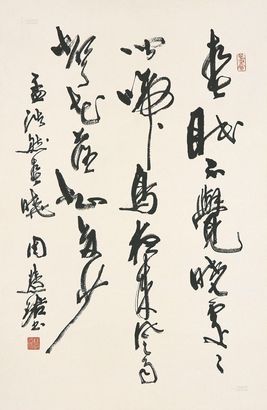 春眠不覺曉處〻
聞啼鳥夜來風雨
聲花落知多少
孟浩然春曉 周慧珺書